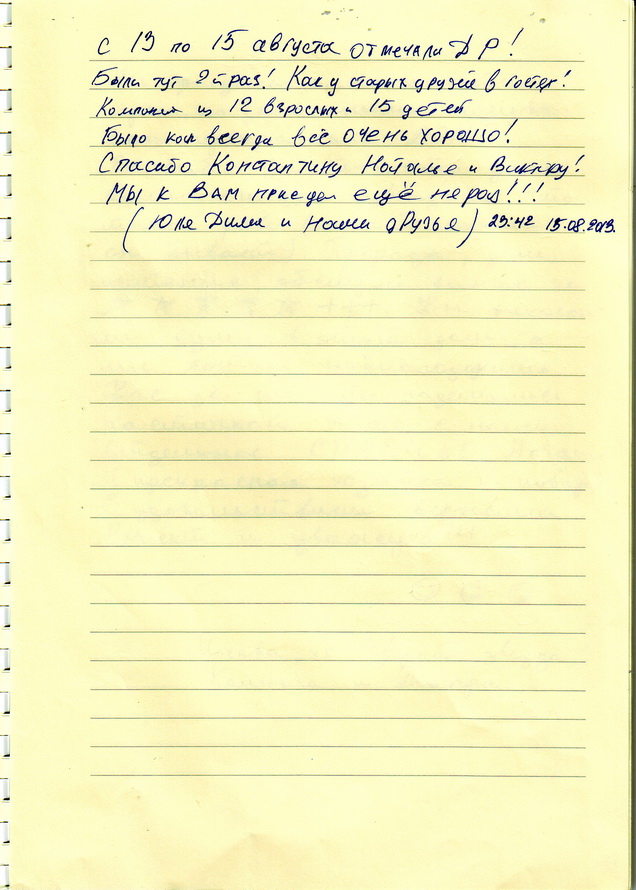 С 13 по 15 августа отмечали ДР!
Были тут 2й раз! Как у старых друзей в гостях!
Компания из 12 взрослых и 15 детей
Было как всегда всё очень хорошо!
Спасибо Константину Наталье и Виктору!
Мы к Вам приедем ещё не раз!!!
(Юля Дима и наши друзья) 23:42 15.08.2013.